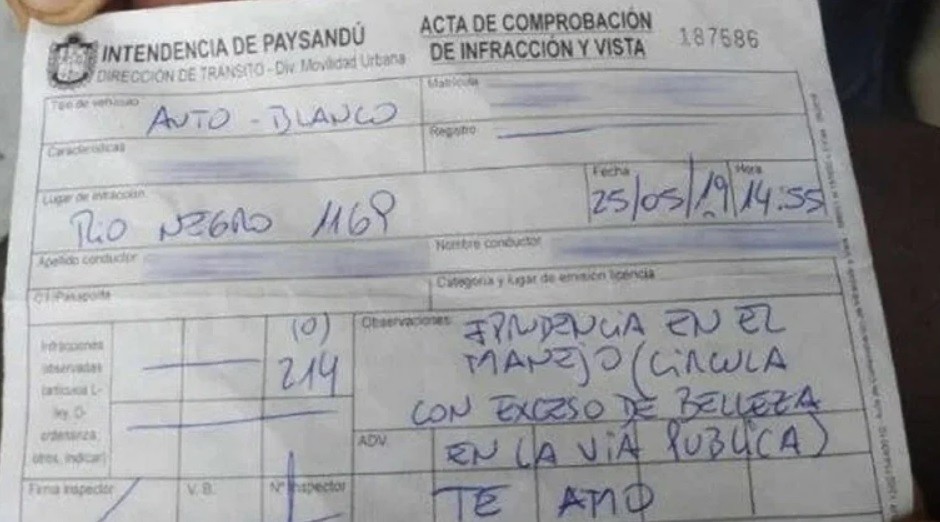 INTENDENCIA DE PAYSANDÚ
DIRECCIÓN DE TRÁNSITO - Div. Movilidad Urbana
ACTA DE COMPROBACIÓN
DE INFRACCIÓN Y VISTA
187586
Tipo de vehículo
AUTO - BLANCO
Matrícula
Registro
Características
Lugar de infracción
RIO NEGRO 1169
Fecha
25/05/19
Hora
14:55
Apellido conductor
Nombre conductor
C.I./Pasaporte
Categoría y lugar de emisión licencia
Infracciones
observadas
(artículo L-
ley, O-
ordenanza,
otros, indicar)
(O)
214
Observaciones:
IPRUDENCIA EN EL
MANEJO (CIRCULA
CON EXCESO DE BELLEZA
ADV.
EN LA VIA PUBLICA)
TE AMO
Firma inspector
V. B.
Nº Inspector